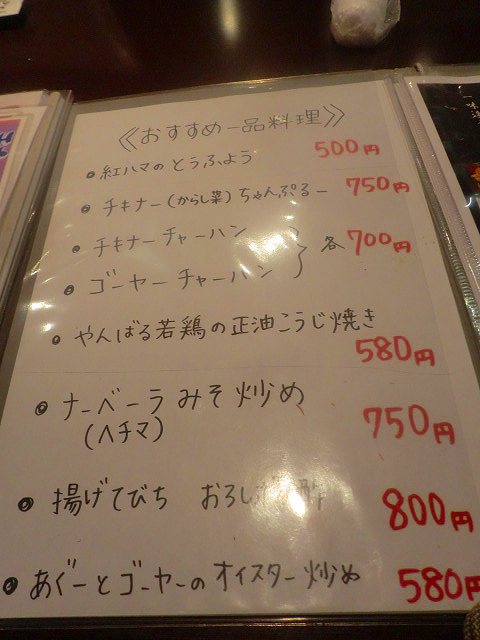 《おすすめ一品料理》
・紅ハマのとうふよう 500円
・チキナー(からし菜)ちゃんぷるー 750円
・チキナーチャーハン
・ゴーヤーチャーハン } 各700円
・やんばる若鶏の正油こうじ焼き
580円
・ナーベーラみそ炒め 750円
(ヘチマ)
・揚げてびち おろし 800円
・あぐーとゴーヤーのオイスター炒め 580円